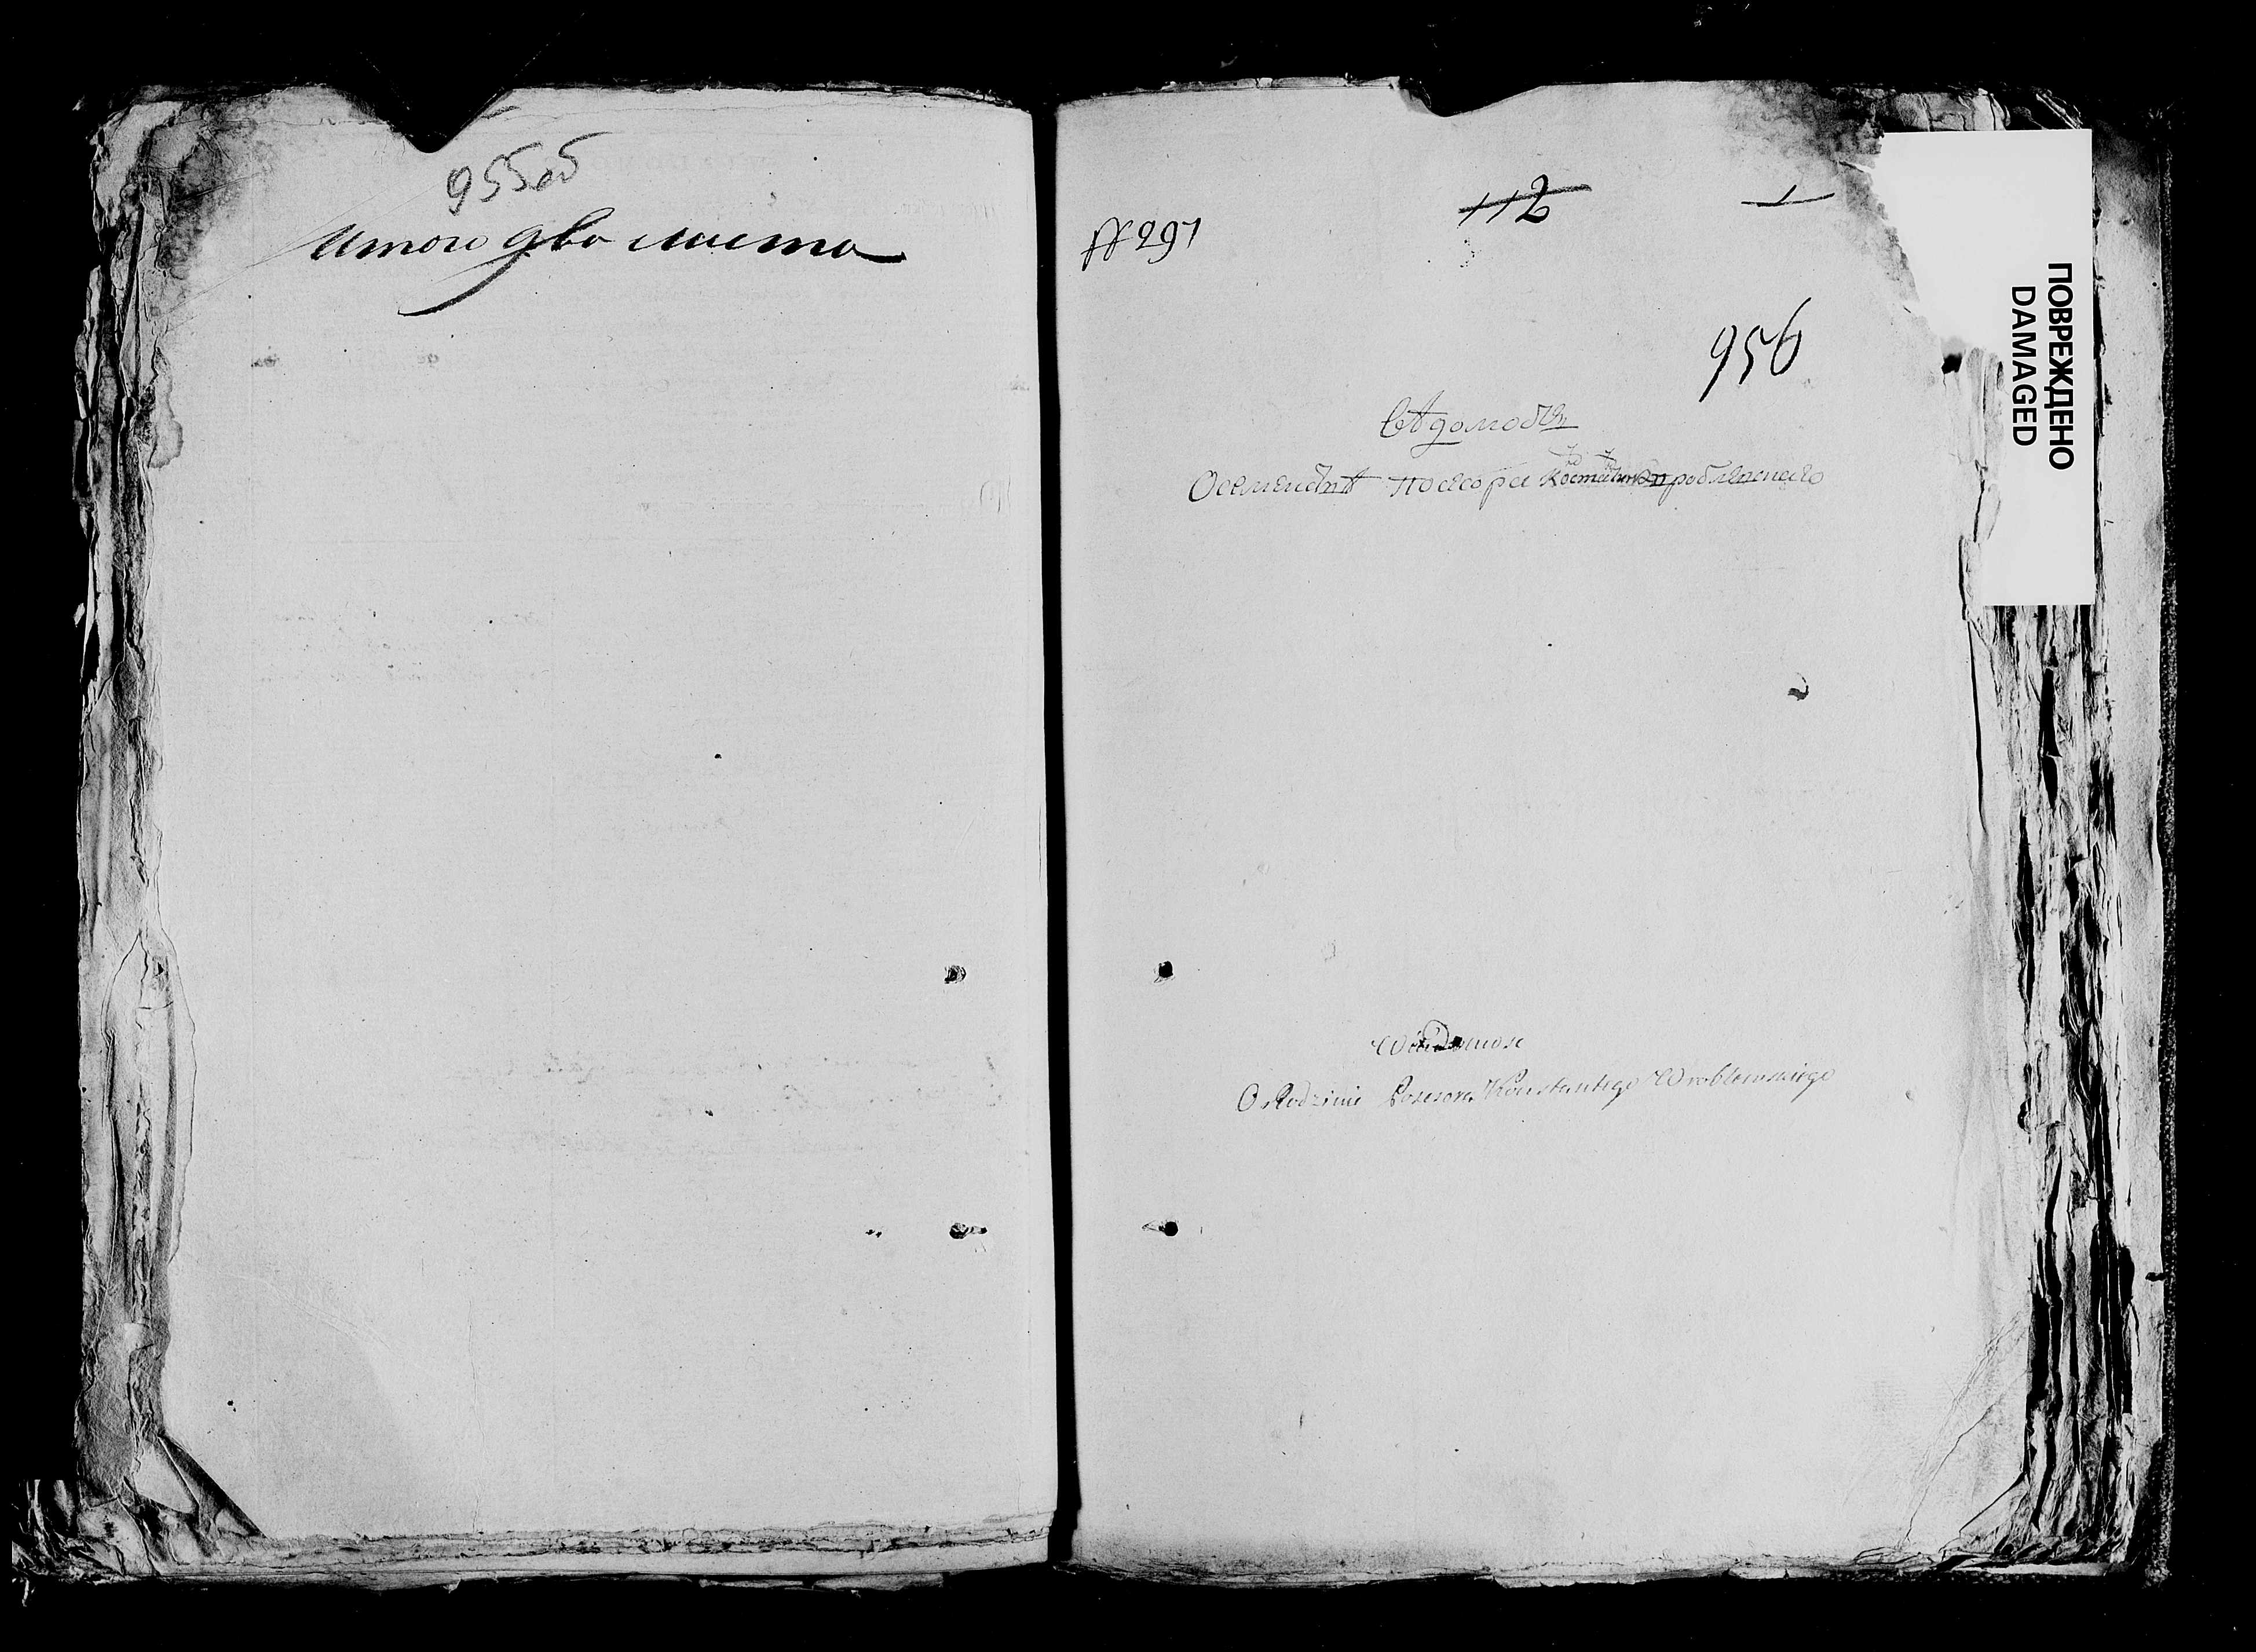 955об
Итого два листа
№ 291
112
1
956
ведомость
О семействѣ посесора Константина Врублевскаго
Wiadomosc
O Rodzinie Posesora Konstantego Wroblewskiego
ПОВРЕЖДЕНО
DAMAGED